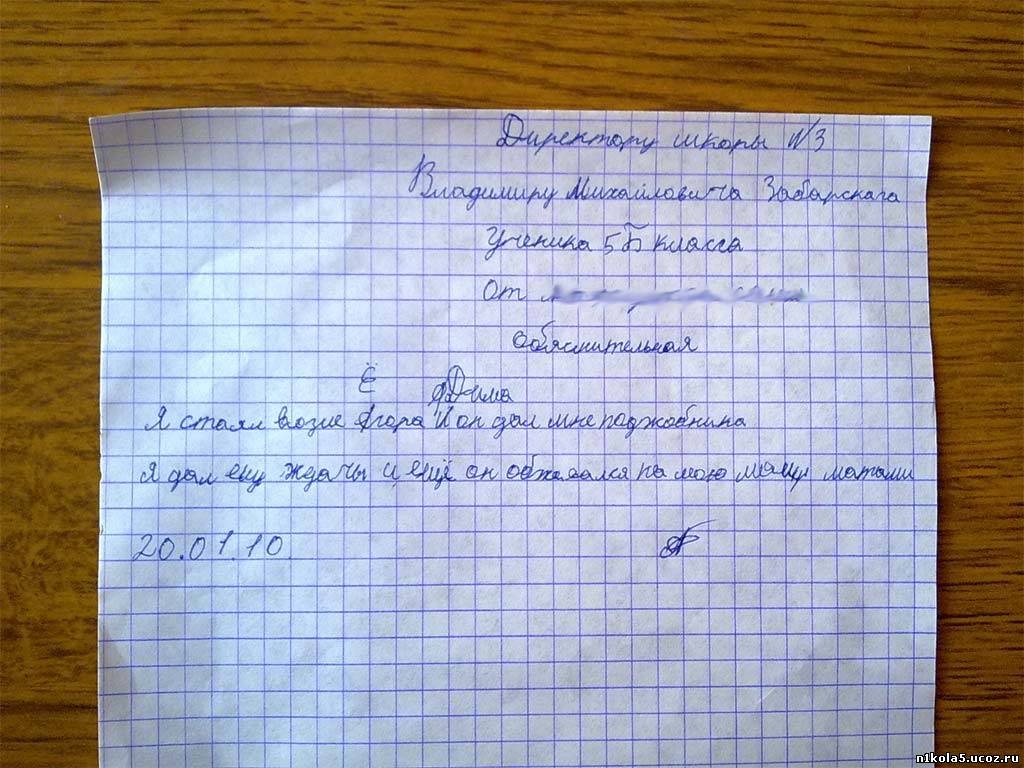 Директору шкоры №3
Владимиру Михайловича Забарскага
Ученика 5Б класса
От
обяснительная
Ё Дима
Я стаял возие Ягора И он дал мне поджобнина
Я дал ему ждачы и ещё он обживался на мою маму матами
20.01.10
n1kola5.ucoz.ru